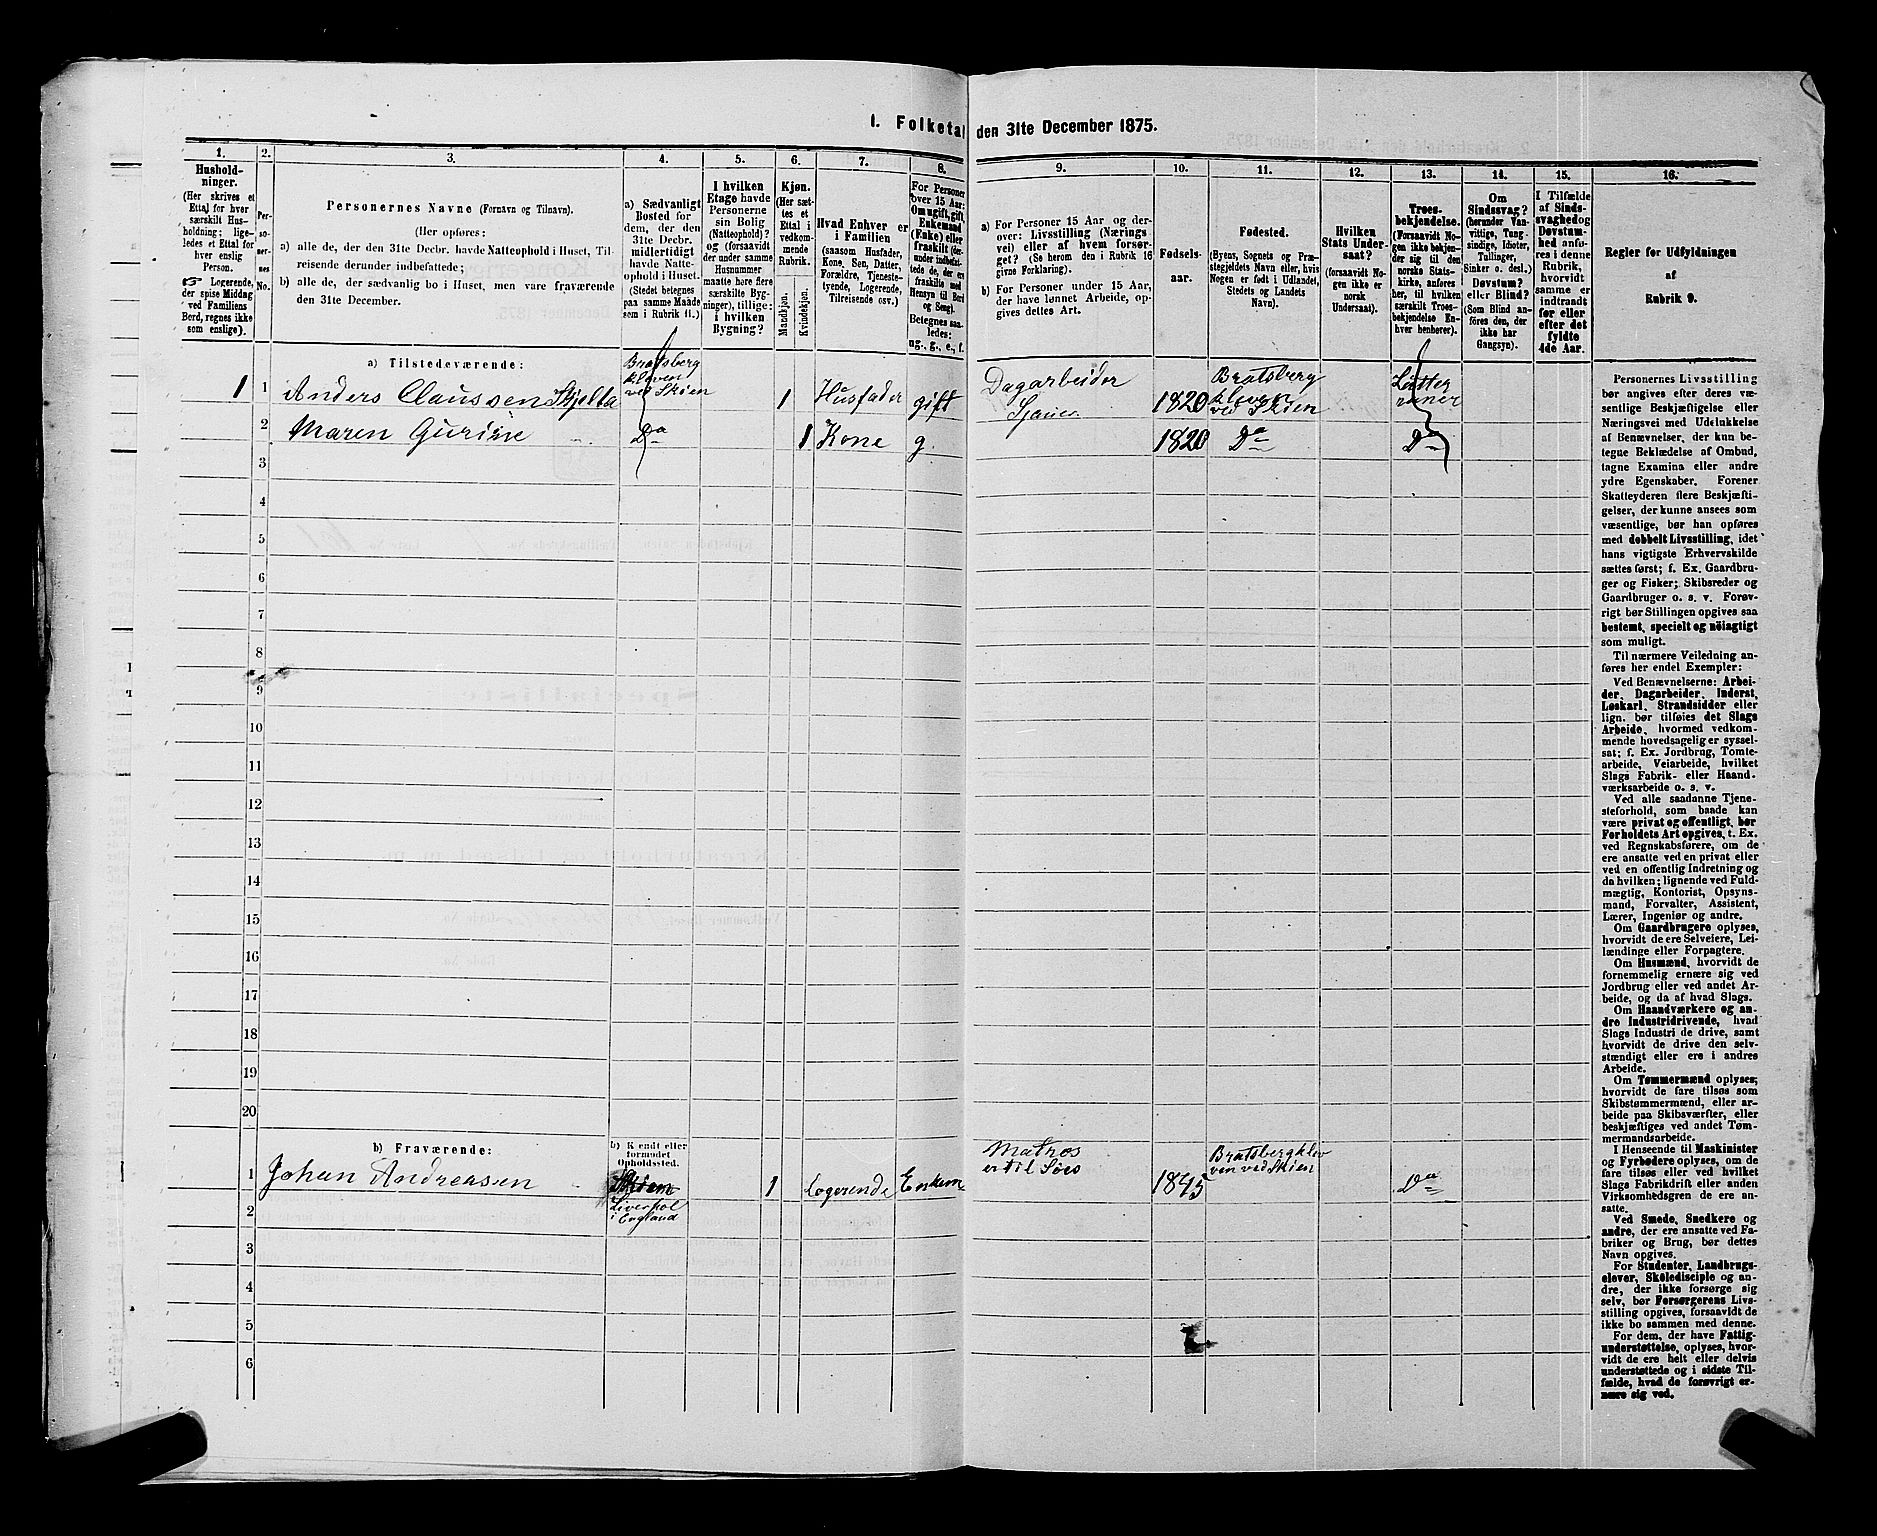 1. Folketal den 31te December 1875.
1.
Hushold-
ninger.
(Her skrives et
Ettal for hver
særskilt Hus-
holdning; lige-
ledes et Ettal for
hver enslig
Person.
Logerende,
der spise Middag
ved Familiens
Bord, regnes ikke
som enslige).
2.
Per-
so-
ner-
nes
No.
3.
Personernes Navne (Fornavn og Tilnavn).
(Her opføres:
a) alle de, der den 31te Decbr. havde Natteophold i Huset, Til-
reisende derunder indbefattede;
b) alle de, der sædvanlig bo i Huset, men vare fraværende
den 31te December.
4.
a) Sædvanligt
Bosted for
dem, der den
31te Decbr.
midlertidigt
havde Natte-
ophold i Huset.
(Stedet betegnes
paa samme Maade
som i Rubrik 11.)
5.
I hvilken
Etage havde
Personerne
sin Bolig
(Natteophold)?
og (forsaavidt
der under samme
Husnummer
maatte høre flere
særskilte Byg-
ninger), tillige:
i hvilken
Bygning?
6.
Kjøn.
(Her sæt-
tes et
Ettal i
vedkom-
mende
Rubrik.
Mandkjøn.
Kvindekjøn.
7.
Hvad Enhver er
i Familien
(saasom Husfader,
Kone, Søn, Datter,
Forældre, Tjeneste-
tyende, Logerende,
Tilreisende osv.)
8.
For Personer
over 15 Aar:
Om ugift, gift,
Enkemand
(Enke) eller
fraskilt (der-
under indbefat-
tede de, der ere
fraskilte med
Hensyn til Bord
og Seng).
Betegnes saa-
ledes:
ug., g., e., f.
9.
a) For Personer 15 Aar og der-
over: Livsstilling (Nærings-
vei) eller af hvem forsør-
get? (Se herom den i Rubrik 16
givne Forklaring).
b) For Personer under 15 Aar,
der have lønnet Arbeide, op-
gives dettes Art.
10.
Fødsels-
aar.
11.
Fødested.
(Byens, Sognets og Præ-
stegjeldets Navn eller, hvis
Nogen er født i Udlandet,
Stedets og Landets
Navn).
12.
Hvilken
Stats Under-
saat?
(forsaavidt No-
gen ikke er
norsk
Undersaat).
13.
Troes-
bekjendelse.
(Forsaavidt No-
gen ikke bekjen-
der sig til den
norske Stats-
kirke, anføres
her, til hvilken
særskilt Troes-
bekjendelse En-
hver henhører).
14.
Om
Sindssvag?
(herunder Van-
vittige, Tung-
sindige, Idioter,
Tullinger,
Sinker o. desl.)
Døvstum?
eller Blind?
(Som Blind an-
føres den, der
ikke har
Gangsyn).
15.
I Tilfælde
af Sinds-
svaghed og
Døvstum-
hed anfø-
res i denne
Rubrik,
hvorvidt
samme er
indtraadt
før eller
efter det
fyldte
4de Aar.
16.
Regler for Udfyldningen
af
Rubrik 9.
a) Tilstedeværende:
1 1 Anders Claussen Skjelta Bratsberg kleven ved Skien 1 Husfader gift Dagarbeider Sjauer 1820 Bratsberg kleven ved Skien Lutteraner
2 Maren Gurine Do 1 Kone g. 1820 Do Do
3
4
5
6
7
8
9
10
11
12
13
14
15
16
17
18
19
20
b) Fraværende:
b) Kendt eller
formodet
Opholdssted.
1 Johan Andreasen Skien Liverpol i England 1 Logerende Enkem Mathos er til Søes 1845 Bratsbergkleven ved Skien Do
2
3
4
5
6
Personernes Livsstilling
bør angives efter deres væ-
sentlige Beskjæftigelse eller
Næringsvei med Udelukkelse
af Benævnelser, der kun be-
tegne Beklædelse af Ombud,
tagne Examina eller andre
ydre Egenskaber. Forener
Skatteyderen flere Beskjæfti-
gelser, der kunne ansees som
væsentlige, bør han opføres
med dobbelt Livsstilling, idet
hans vigtigste Erhvervskilde
sættes først; f. Ex. Gaardbru-
ger og Fisker; Skibsreder og
Gaardbruger o. s. v. Forøv-
rigt bør Stillingen opgives saa
bestemt, specielt og nöiagtigt
som muligt.
Til nærmere Veiledning an-
føres her endel Exempler:
Ved Benævnelserne: Arbei-
der, Dagarbeider, Inderst,
Løskarl, Strandsidder eller
lign. bør tilføies det Slags
Arbeide, hvormed vedkom-
mende hovedsagelig er syssel-
sat; f. Ex. Jordbrug, Tomte-
arbeide, Veiarbeide, hvilket
Slags Fabrik- eller Haand-
værksarbeide o. s. v.
Ved alle saadanne Tjene-
steforhold, som baade kan
være privat og offentligt, bør
Forholdets Art opgives, t. Ex.
ved Regnskabsførere, om de
ere ansatte ved en privat eller
ved en offentlig Indretning og
da hvilken; lignende ved Fuld-
mægtig, Kontorist, Opsyns-
mand, Forvalter, Assistent,
Lærer, Ingeniør og andre.
Om Gaardbrugere oplyses,
hvorvidt de ere Selveiere, Lei-
lændinge eller Forpagtere.
Om Husmænd, hvorvidt de
fornemmelig ernære sig ved
Jordbrug eller ved andet Ar-
beide, og da af hvad Slags.
Om Haandværkere og an-
dre Industridrivende, hvad
Slags Industri de drive, samt
hvorvidt de drive den selv-
stændigt eller ere i andres
Arbeide.
Om Tømmermænd oplyses,
hvorvidt de fare tilsøs som
Skibstømmermænd, eller ar-
beide paa Skibsværfter, eller
beskjæftiges ved andet Tøm-
mermandsarbeide.
I Henseende til Maskinister
og Fyrbødere oplyses, om de
fare tilsøs eller ved hvilket
Slags Fabrikdrift eller anden
Virksomhedsgren de ere an-
satte.
Ved Smede, Snedkere og
andre, der ere ansatte ved Fa-
briker og Brug, bør dettes
Navn opgives.
For Studenter, Landbrugs-
elever, Skoledisciple og an-
dre, der ikke forsørge sig
selv, bør Forsørgerens Livs-
stilling opgives, forsaavidt de
ikke bo sammen med denne.
For dem, der have Fattig-
understøttelse, oplyses, hvor-
vidt de ere helt eller delvis
understøttede og i sidste Til-
fælde, hvad de forøvrigt er-
nære sig ved.